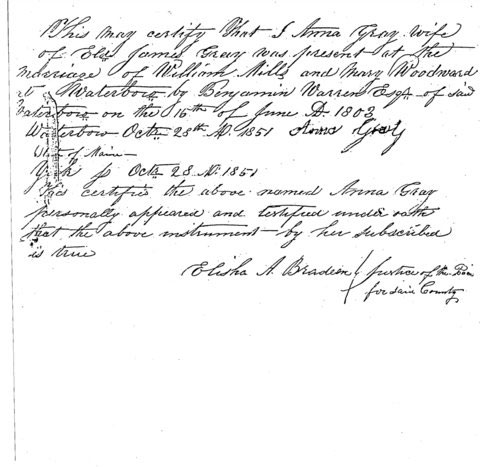 This may certify That I Anna Gray wife
of Eld. James Gray was present at the
marriage of William Mills and Mary Woodward
at Waterboro by Benjamin Warren Esqr. of said
Waterboro on the 16th of June D. 1803
Waterboro Octr 28th D. 1851 Anna Gray
State of Maine
York ss Octr 28. D. 1851
This certifies the above named Anna Gray
personally appeared and testified under oath
that the above instrument by her subscribed
is true
Elisha A. Bradeen Justice of the Peace
for said County